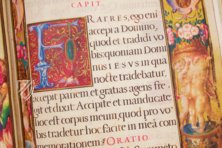 CAPIT.
FRATRES, ego eni
accepi a Domino,
quod et tradidi vo
bis: quoniam Domi
nus IESVS in qua
nocte tradebatur,
accepit panem et gratias agens fre
git et dixit: Accipite et manducate:
hoc est corpus meum, quod pro vo
bis tradetur: hoc facite in meā com
memorationem. ORATIO.